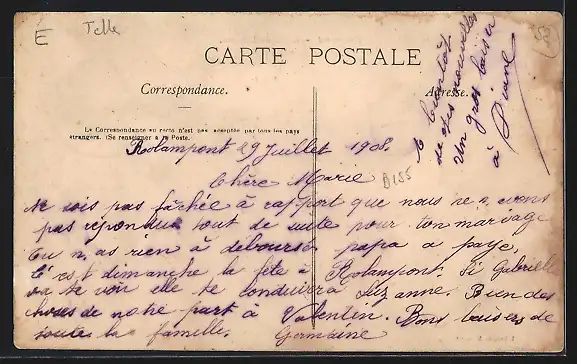 E
Telle
CARTE POSTALE
Correspondance.
Adresse.
La Correspondance au recto n'est pas acceptée par tous les pays
étrangers. (Se renseigner à la Poste.
a bientôt
de tes nouvelles
Un gros baiser
à Diane
Rolampont 29 Juillet 1908.
Chère Marie
B155
Ne sois pas fâchée à rapport que nous ne avons
pas répondue tout de suite pour ton mariage
tu n'as rien à deboursé papa a payé,
C'est dimanche la fête à Rolampont. Si Gabrielle
va te voir elle te conduirra Suzanne. Bien des
choses de notre part à Valentin. Bons baisers de
toute la famille.
Germaine